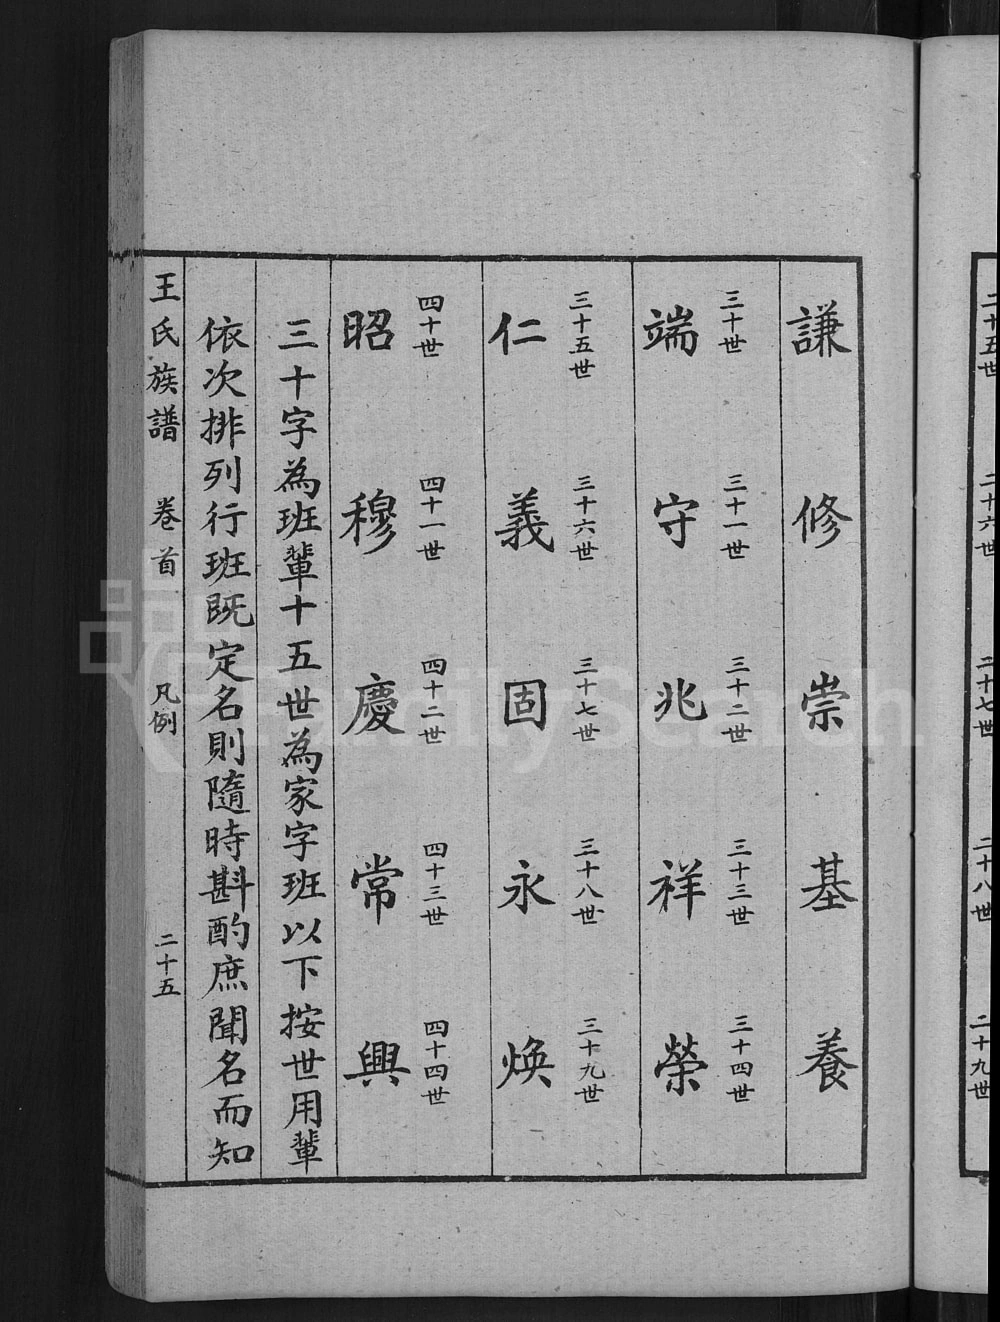 二十五世 二十六世 二十七世 二十八世 二十九世
謙 修 崇 基 養
三十世 三十一世 三十二世 三十三世 三十四世
端 守 兆 祥 榮
三十五世 三十六世 三十七世 三十八世 三十九世
仁 義 固 永 煥
四十世 四十一世 四十二世 四十三世 四十四世
昭 穆 慶 常 興
三十字為班輩十五世為家字班以下按世用輩
依次排列行班既定名則隨時斟酌庶聞名而知
王氏族譜 卷首 凡例 二十五
FamilySearch